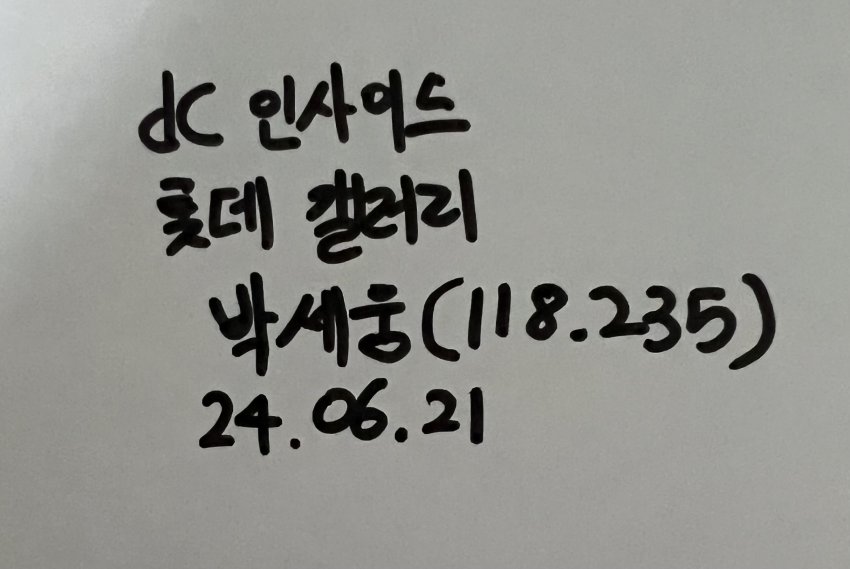 dC 인사이드
롯데 갤러리
박세웅(118.235)
24.06.21